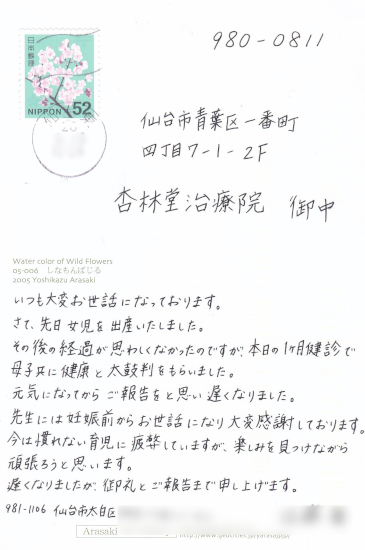 980-0811
日本郵便
NIPPON 52
仙台市青葉区一番町
四丁目7-1-2F
杏林堂治療院 御中
Water color of Wild Flowers
05-006 しなもんばじる
2005 Yoshikazu Arasaki
いつも大変お世話になっております。
さて、先日女児を出産いたしました。
その後の経過が思わしくなかったのですが、本日の1ヶ月健診で
母子共に健康と太鼓判をもらいました。
元気になってからご報告をと思い遅くなりました。
先生には妊娠前からお世話になり大変感謝しております。
今は慣れない育児に疲弊していますが、楽しみを見つけながら
頑張ろうと思います。
遅くなりましたが、御礼とご報告まで申し上げます。
981-1106 仙台市太白区
Arasaki